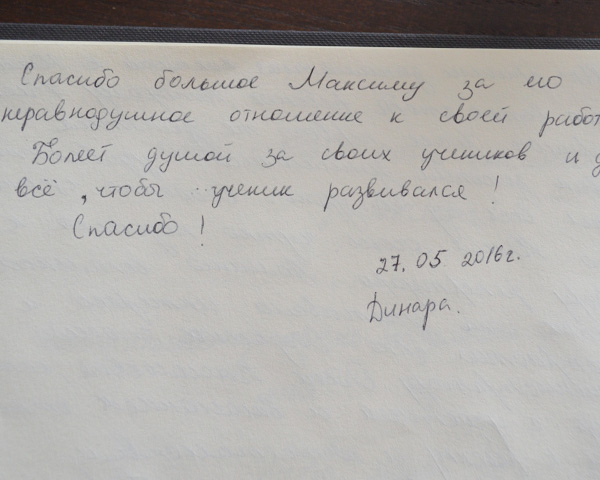 Спасибо большое Максиму за его
неравнодушное отношение к своей работ
Болеет душой за своих учеников и д
всё, чтобы ученик развивался!
Спасибо!
27.05 2016г.
Динара.